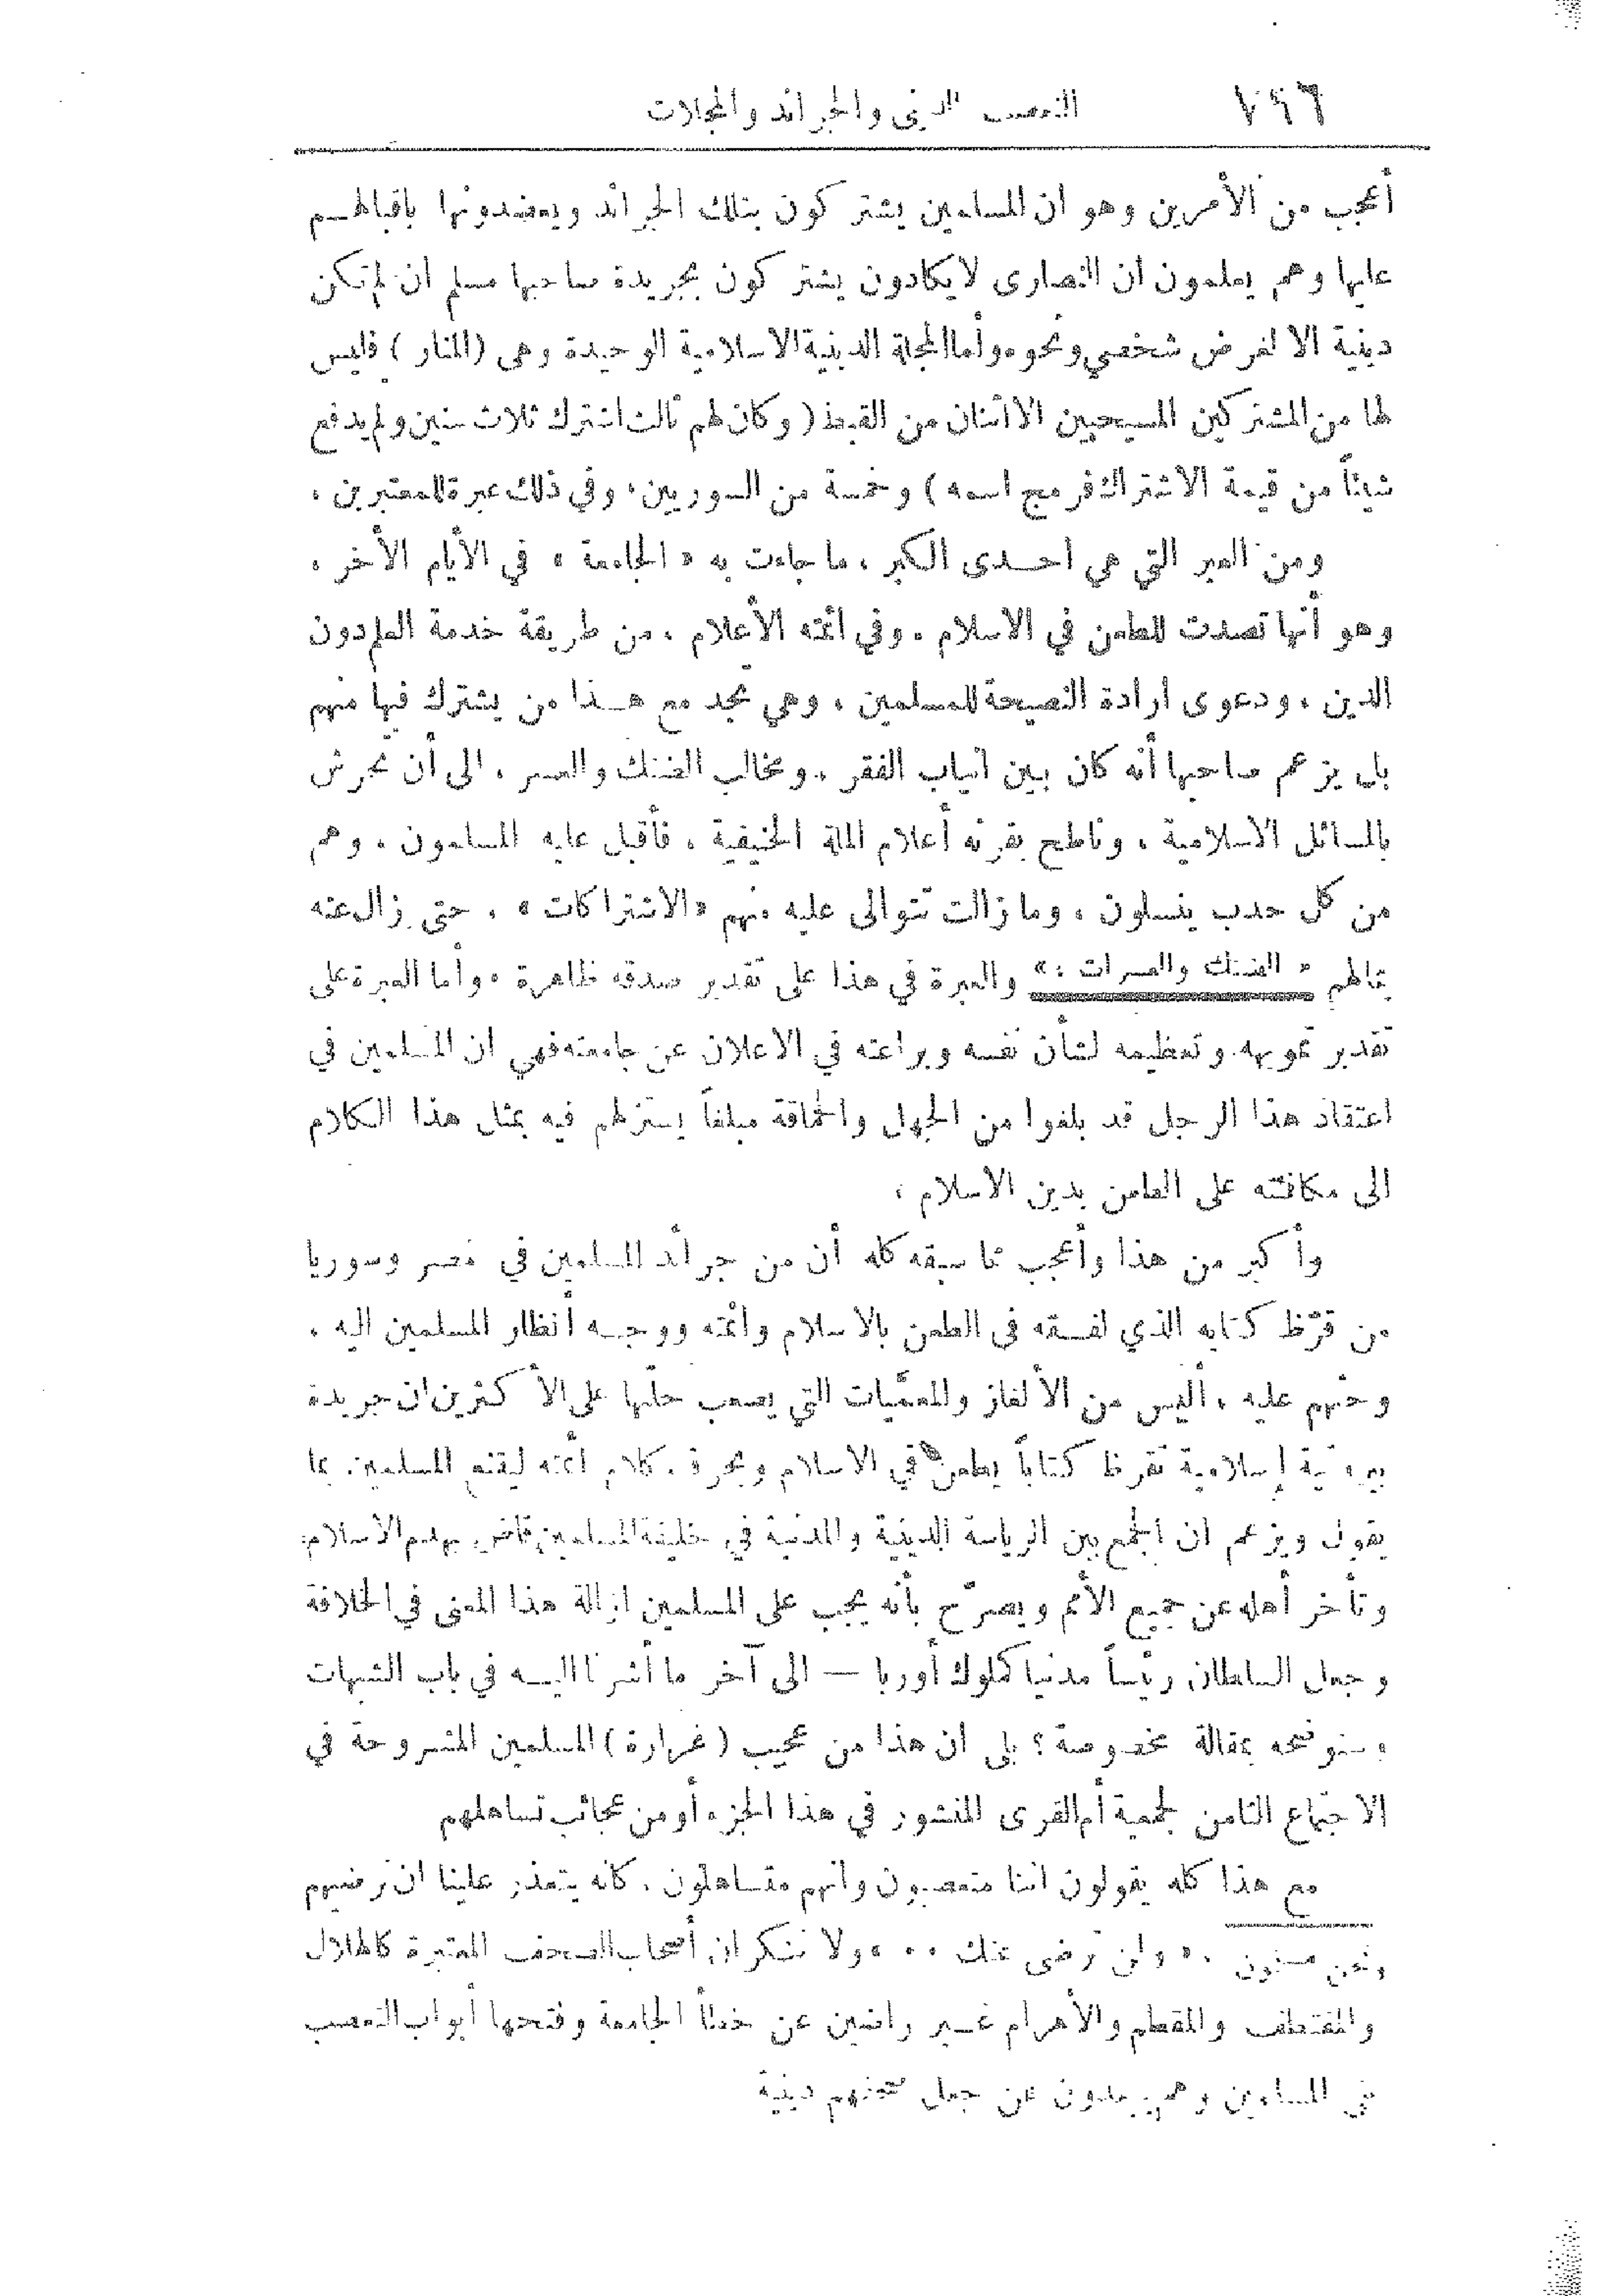 ٧٩٦
التعصب الديني والجرائد والمجلات
أعجب من الأمرين وهو ان المسلمين يشتركون بتلك الجرائد ويعضدونها باقبالهـم
عليها وهم يعلمون ان النصارى لا يكادون يشتركون بجريدة صاحبها مسلم ان لم تكن
دينية الا لغرض شخصي ونحوه وأما المجلة الدينية الاسلامية الوحيدة وهى (المنار) فليس
لها من المشتركين المسيحيين الا اثنان من القبط (وكان لهم ثالث اشترك ثلاث سنين ولم يدفع
شيئاً من قيمة الاشتراك فرمج اسمه) وخمسة من السوريين، وفي ذلك عبرة للمعتبرين ،
ومن العبر التي هي احـدى الكبر ، ما جاءت به « الجامعة » في الأيام الأخر ،
وهو أنها تصدت للطعن في الاسلام ، وفي ائمته الأعلام ، من طريقة خدمة العلم دون
الدين ، ودعوى ارادة النصيحة للمسلمين ، وهي تجد مع هـذا من يشترك فيها منهم
بل يزعم صاحبها أنه كان بين انياب الفقر ، ومخالب الضنك والعسر ، الى أن تحرش
بالمسائل الاسلامية ، وناطح بقرنه أعلام الملة الحنيفية ، فأقبل عليه المسلمون ، وهم
من كل حدب ينسلون ، وما زالت تتوالى عليه منهم «الاشتراكات» ، حتى زال عنه
« الضنك والعسرات ،» والعبرة في هذا على تقدير صدقه ظاهرة ، وأما العبرة على
تقدير تمويهه وتعظيمه لشأن نفسه وبراعته في الاعلان عن جامعته فهي ان المسلمين في
اعتقاد هذا الرجل قد بلغوا من الجهل والحماقة مبلغاً يستنزلهم فيه بمثل هذا الكلام
الى مكافئته على الطعن بدين الاسلام ،
وأكبر من هذا وأعجب مما سبقه كله أن من جرائد المسلمين في مصر وسوريا
من قرّظ كتابه الذي لفـقه فى الطعن بالاسلام وائمته ووجـه أنظار المسلمين اليه ،
وحثهم عليه ، أليس من الألغاز والمعمّيات التي يصعب حلّها على الأكثرين ان جريدة
بيروتية إسلامية تقرظ كتاباً يطعن في الاسلام ويحرف كلام أئمته ليقنع المسلمين بما
يقول ويزعم ان الجمع بين الرياسة الدينية والمدنية في خليفة المسلمين قاض بهدم الاسلام
وتأخر أهله عن جميع الأمم ويصرّح بأنه يجب على المسلمين ازالة هذا المعنى في الخلافة
وجعل السلطان رئيساً مدنيا كملوك أوربا — الى آخر ما أشرنا اليـه في باب الشبهات
وسنوضحه بمقالة مخصوصة ؟ بلى ان هذا من عجيب (غرارة) المسلمين المشروحة في
الاجتماع الثامن لجمعية أم القرى المنشور في هذا الجزء أو من عجائب تساهلهم
مع هذا كله يقولون اننا متعصبون وانهم متساهلون ، كأنه يتعذر علينا ان نرضيهم
ونحن مسلمون ، « ولن ترضى عنك ٠٠ » ولا ننكر ان أصحاب الصحف المعتبرة كالهلال
والمقتطف والمقطم والأهرام غـير راضين عن خطأ الجامعة وفتحها أبواب التعصب
في المسلمين وهم يبعدون عن جعل صحفهم دينية